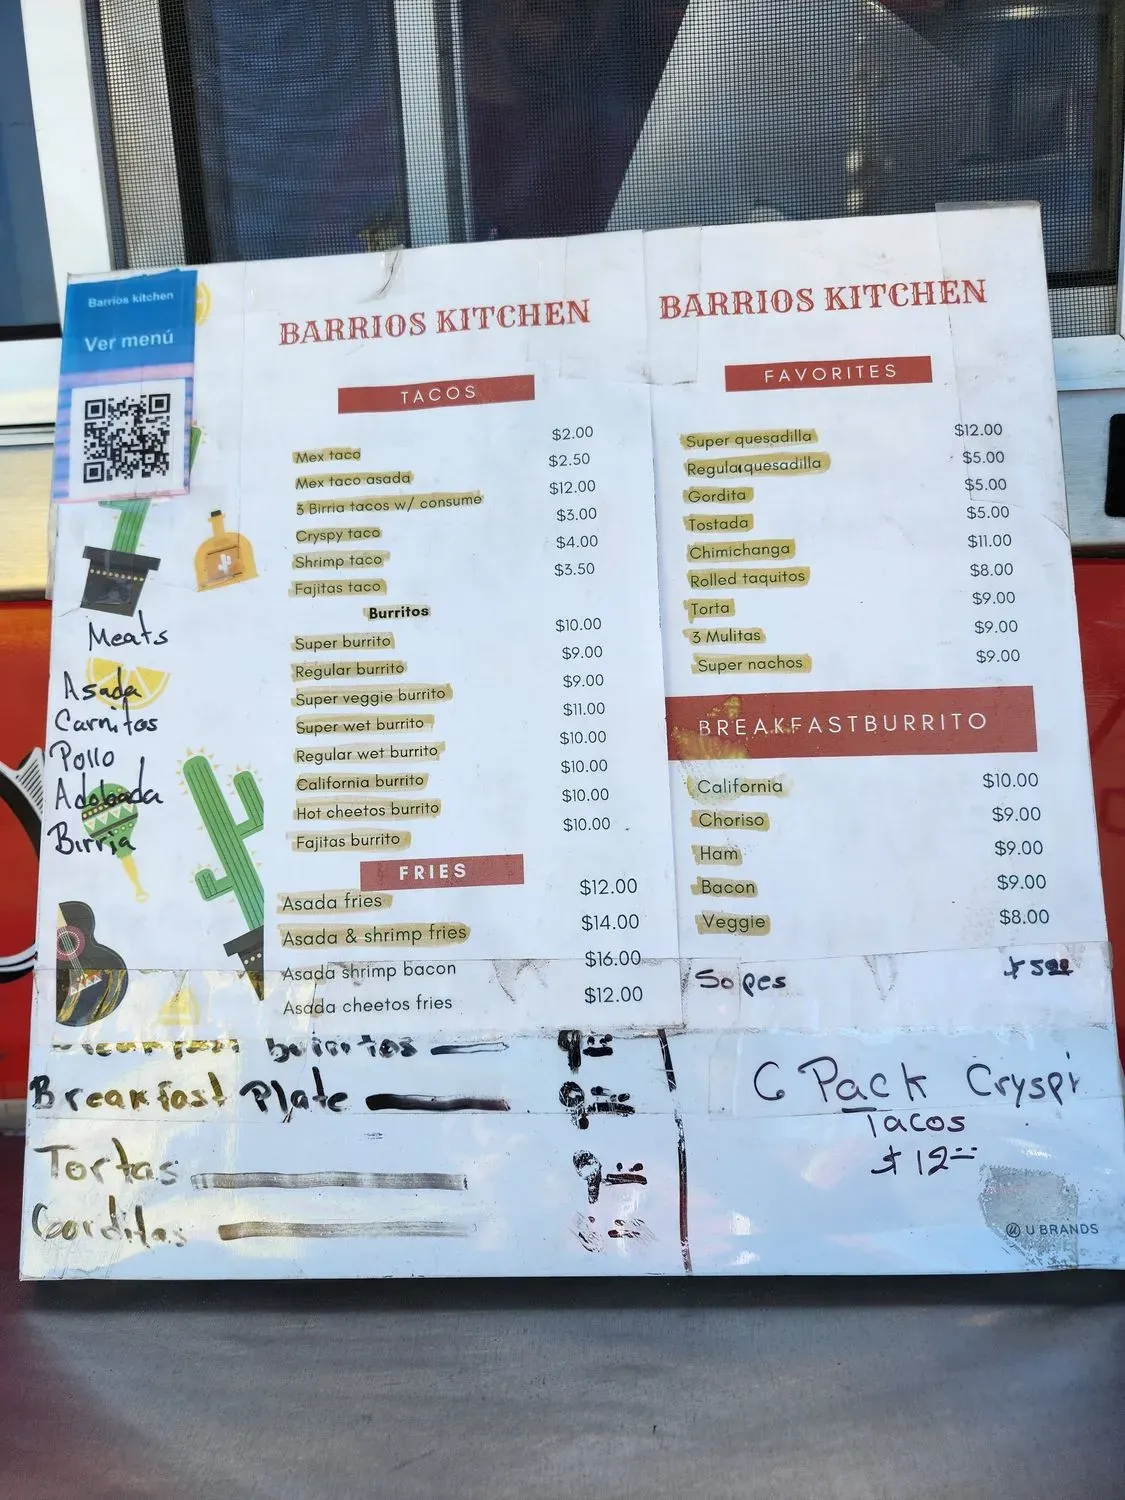 Barrios kitchen
Ver menú
BARRIOS KITCHEN
TACOS
Mex taco $2.00
Mex taco asada $2.50
3 Birria tacos w/ consume $12.00
Cryspy taco $3.00
Shrimp taco $4.00
Fajitas taco $3.50
Burritos
Super burrito $10.00
Regular burrito $9.00
Super veggie burrito $9.00
Super wet burrito $11.00
Regular wet burrito $10.00
California burrito $10.00
Hot cheetos burrito $10.00
Fajitas burrito $10.00
FRIES
Asada fries $12.00
Asada & shrimp fries $14.00
Asada shrimp bacon $16.00
Asada cheetos fries $12.00
BARRIOS KITCHEN
FAVORITES
Super quesadilla $12.00
Regular quesadilla $5.00
Gordita $5.00
Tostada $5.00
Chimichanga $11.00
Rolled taquitos $8.00
Torta $9.00
3 Mulitas $9.00
Super nachos $9.00
BREAKFASTBURRITO
California $10.00
Choriso $9.00
Ham $9.00
Bacon $9.00
Veggie $8.00
Sopes $5.00
Meats
Asada
Carnitas
Pollo
Adobada
Birria
burritos
Breakfast Plate
Tortas
Gorditas
6 Pack Cryspi
Tacos
$12
U BRANDS